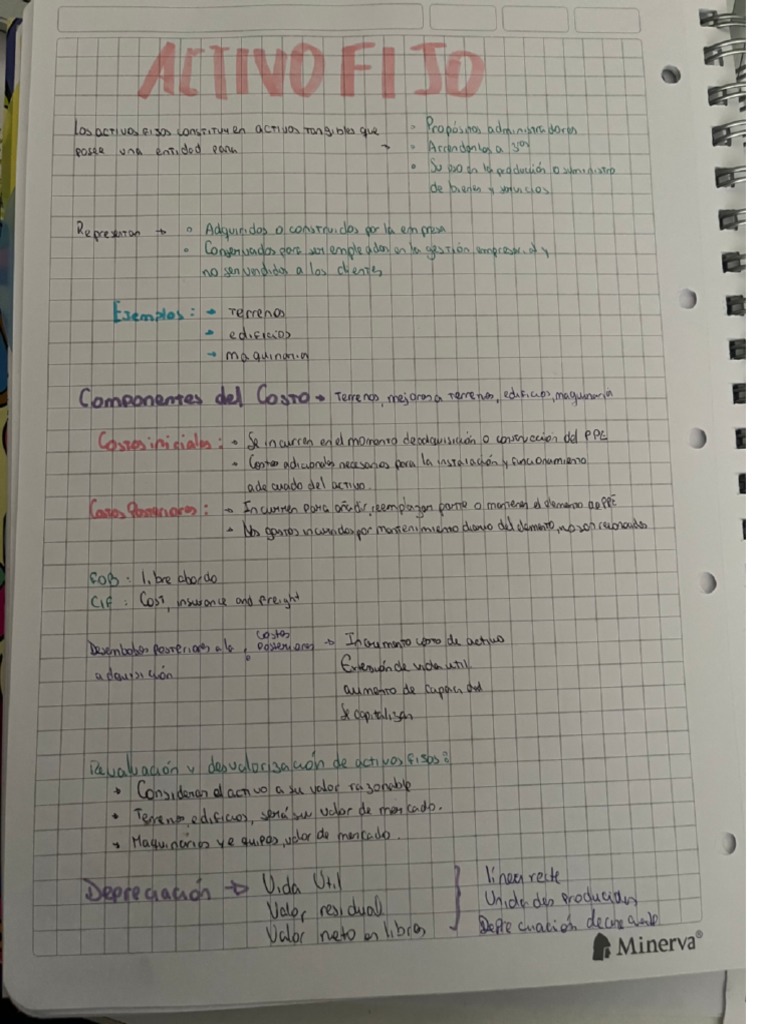 ACTIVO FIJO
Los activos fijos constituyen activos tangibles que
posee una entidad para →
• Propósitos administradores
• Arrendarlos a 3ros
• Su uso en la producción o suministro
de bienes y servicios
Representan → • Adquiridos o construidos por la empresa
• Conservados para ser empleados en la gestión empresarial y
no ser vendidos a los clientes
Ejemplos: → terrenos
→ edificios
→ maquinaria
Componentes del Costo → Terrenos, mejoras a terrenos, edificios, maquinaria
Costos iniciales: → Se incurren en el momento de adquisición o construcción del PPE
→ Costos adicionales necesarios para la instalación y funcionamiento
adecuado del activo.
Costos Posteriores: → Incurren para añadir, reemplazan parte o mantienen el elemento de PPE
→ Nos gastos incurridos por mantenimiento diario del elemento, no son
FOB: libre abordo
CIF: Cost, insurance and freight
Desembolsos posteriores a la
adquisición
: costos
posteriores → Incremento como de activo
Extensión de vida util
aumento de capacidad
Se capitalizan
Revaluación y desvalorización de activos fijos:
• Consideran el activo a su valor razonable
• Terreno, edificios, será su valor de mercado.
→ Maquinarias y equipos, valor de mercado.
Depreciación → Vida Util
Valor residual
Valor neto en libros
línea recta
Unidades producidas
Depreciación decreciente
Minerva®